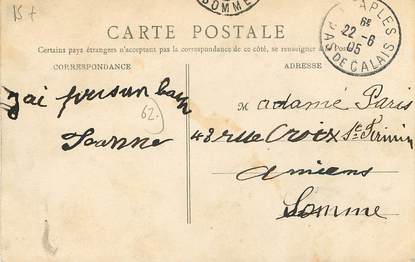 15 +
SOMME
ETAPLES
6E
22-6
05
PAS DE CALAIS
CARTE POSTALE
Certains pays étrangers n'acceptant pas la correspondance de ce côté, se renseigner à la Poste
CORRESPONDANCE
ADRESSE
j'ai pris un bain
Jeanne
62.
Madame Paris
43 rue Croix St Firmin
Amiens
Somme